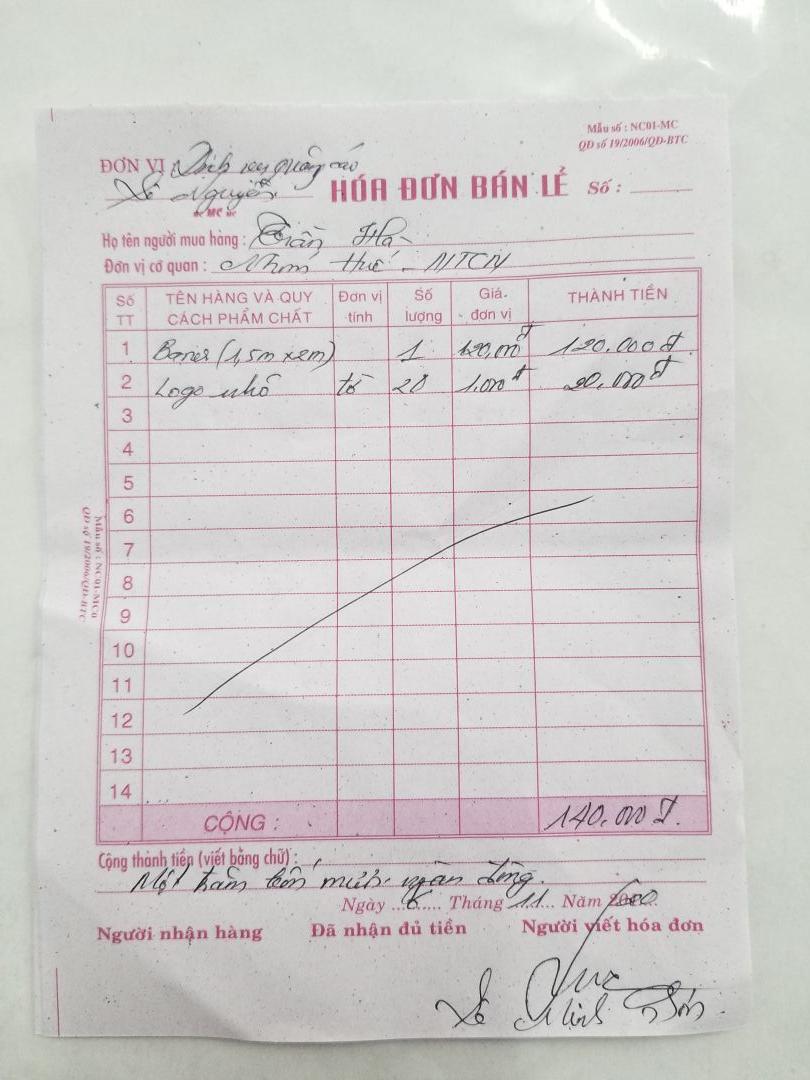 Mẫu số : NC01-MC
QĐ số 19/2006/QĐ-BTC
ĐƠN VỊ Dịch vụ quảng cáo
Lê Nguyễn
HÓA ĐƠN BÁN LẺ Số :
MC
Họ tên người mua hàng : Trần Hà
Đơn vị cơ quan : Nhóm Huế - MTCN
Số TT TÊN HÀNG VÀ QUY CÁCH PHẨM CHẤT Đơn vị tính Số lượng Giá đơn vị THÀNH TIỀN
1 Baner (1,5m x 2m) 1 120.000đ 120.000đ
2 Logo nhỏ tờ 20 1.000đ 20.000đ
3
4
5
6
7
8
9
10
11
12
13
14
CỘNG : 140.000đ.
Mẫu số : NC01-MC0
QĐ số 19/2006/QĐ-BTC
Cộng thành tiền (viết bằng chữ) :
Một trăm bốn mươi ngàn đồng.
Ngày 6 Tháng 11 Năm
Người nhận hàng Đã nhận đủ tiền Người viết hóa đơn
Lê Minh